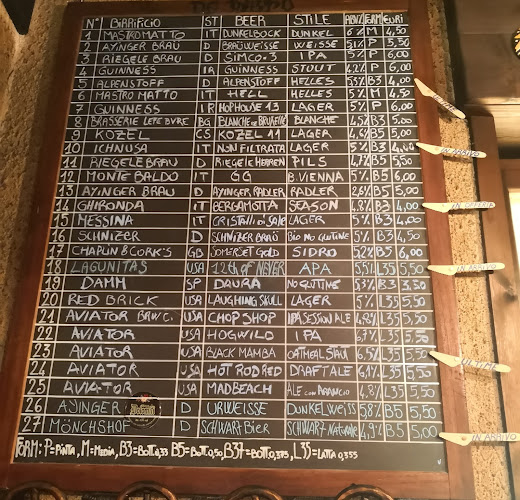 N° BIRRIFICIO ST BEER STILE ABV% FORM EURI
1 MASTROMATTO IT DUNKELBOCK DUNKEL 6% M 4,50
2 AYINGER BRÄU D BRÄUWEISSE WEISSE 5,1% P 5,50
3 RIEGELE BRÄU D SIMCO·3 IPA 5% P 6,00
4 GUINNESS IR GUINNESS STOUT 4,2% P 6,00
5 ALPENSTOFF D ALPENSTOFF HELLES 5,5% B3 4,00
6 MASTRO MATTO IT HELL HELLES 5% M 4,50
7 GUINNESS IR HOPHOUSE 13 LAGER 5% P 6,00
8 BRASSERIE LEFEBVRE BG BLANCHE DE BRUXELLE BLANCHE 4,5% B3 5,00
9 KOZEL CS KOZEL 11 LAGER 4,6% B5 5,00
10 ICHNUSA IT NON FILTRATA LAGER 5% B5 4,00
11 RIEGELE BRÄU D RIEGELE HERREN PILS 4,7% B5 5,50
12 MONTE BALDO IT GG B.VIENNA 5% B5 6,00
13 AYINGER BRÄU D AYINGER RADLER RADLER 2,6% B5 5,00
14 GHIRONDA IT BERGAMOTTA SEASON 4,8% B3 4,00
15 MESSINA IT CRISTALLI di SALE LAGER 5% B3 4,00
16 SCHNIZER D SCHNIZER BRÄU BIO NO GLUTINE 5% B3 4,50
17 CHAPLIN & CORK'S GB SOMERSET GOLD SIDRO 5,2% B5 6,00
18 LAGUNITAS USA 12th of NEVER APA 5,5% L35 5,50
19 DAMM SP DAURA NO GLUTINE 5% B3 3,50
20 RED BRICK USA LAUGHING SKULL LAGER 5% L35 5,50
21 AVIATOR BRW/C. USA CHOP SHOP IPA SESSION ALE 4,8% L35 5,50
22 AVIATOR USA HOGWILD IPA 6,7% L35 5,50
23 AVIATOR USA BLACK MAMBA OATMEAL STOUT 6,5% L35 5,50
24 AVIATOR USA HOT ROD RED DRAFT ALE 6,1% L35 5,50
25 AVIATOR USA MADBEACH ALE con ARANCIO 4,8% L35 5,50
26 AYINGER D URWEISSE DUNKELWEISS 5,8% B5 5,50
27 MÖNCHSHOF D SCHWARTBIER SCHWARTZ NATURALE 4,9% B5 5,00
FORM: P=PINTA, M=MEDIA, B3=BOTT.0,33 B5=BOTT.0,50, B37=BOTT.0,375, L35=LATTA 0,355
IN ARRIVO
ULTIME
IN ARRIVO